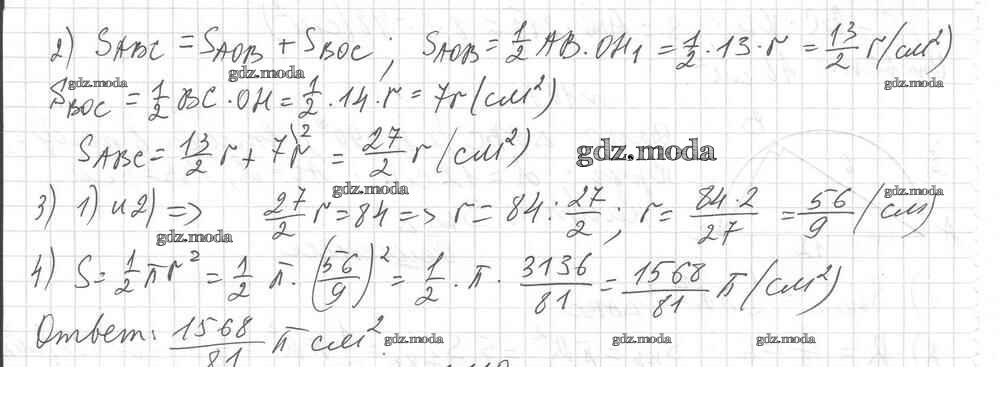 2) S_ABC = S_AOB + S_BOC ; S_AOB = 1/2 AB · OH₁ = 1/2 · 13 · r = 13/2 r (см²)
gdz.moda gdz.moda gdz.moda
S_BOC = 1/2 BC · OH = 1/2 · 14 · r = 7r (см²)
S_ABC = 13/2 r + 7r \2 = 27/2 r (см²)
gdz.moda
gdz.moda gdz.moda
3) 1) и 2) => 27/2 r = 84 => r = 84 : 27/2 ; r = 84·2/27 = 56/9 (см)
gdz.moda
4) S = 1/2 πr² = 1/2 π · (56/9)² = 1/2 · π · 3136/81 = 1568/81 π (см²)
Ответ: 1568/81 π см².
gdz.moda gdz.moda gdz.moda